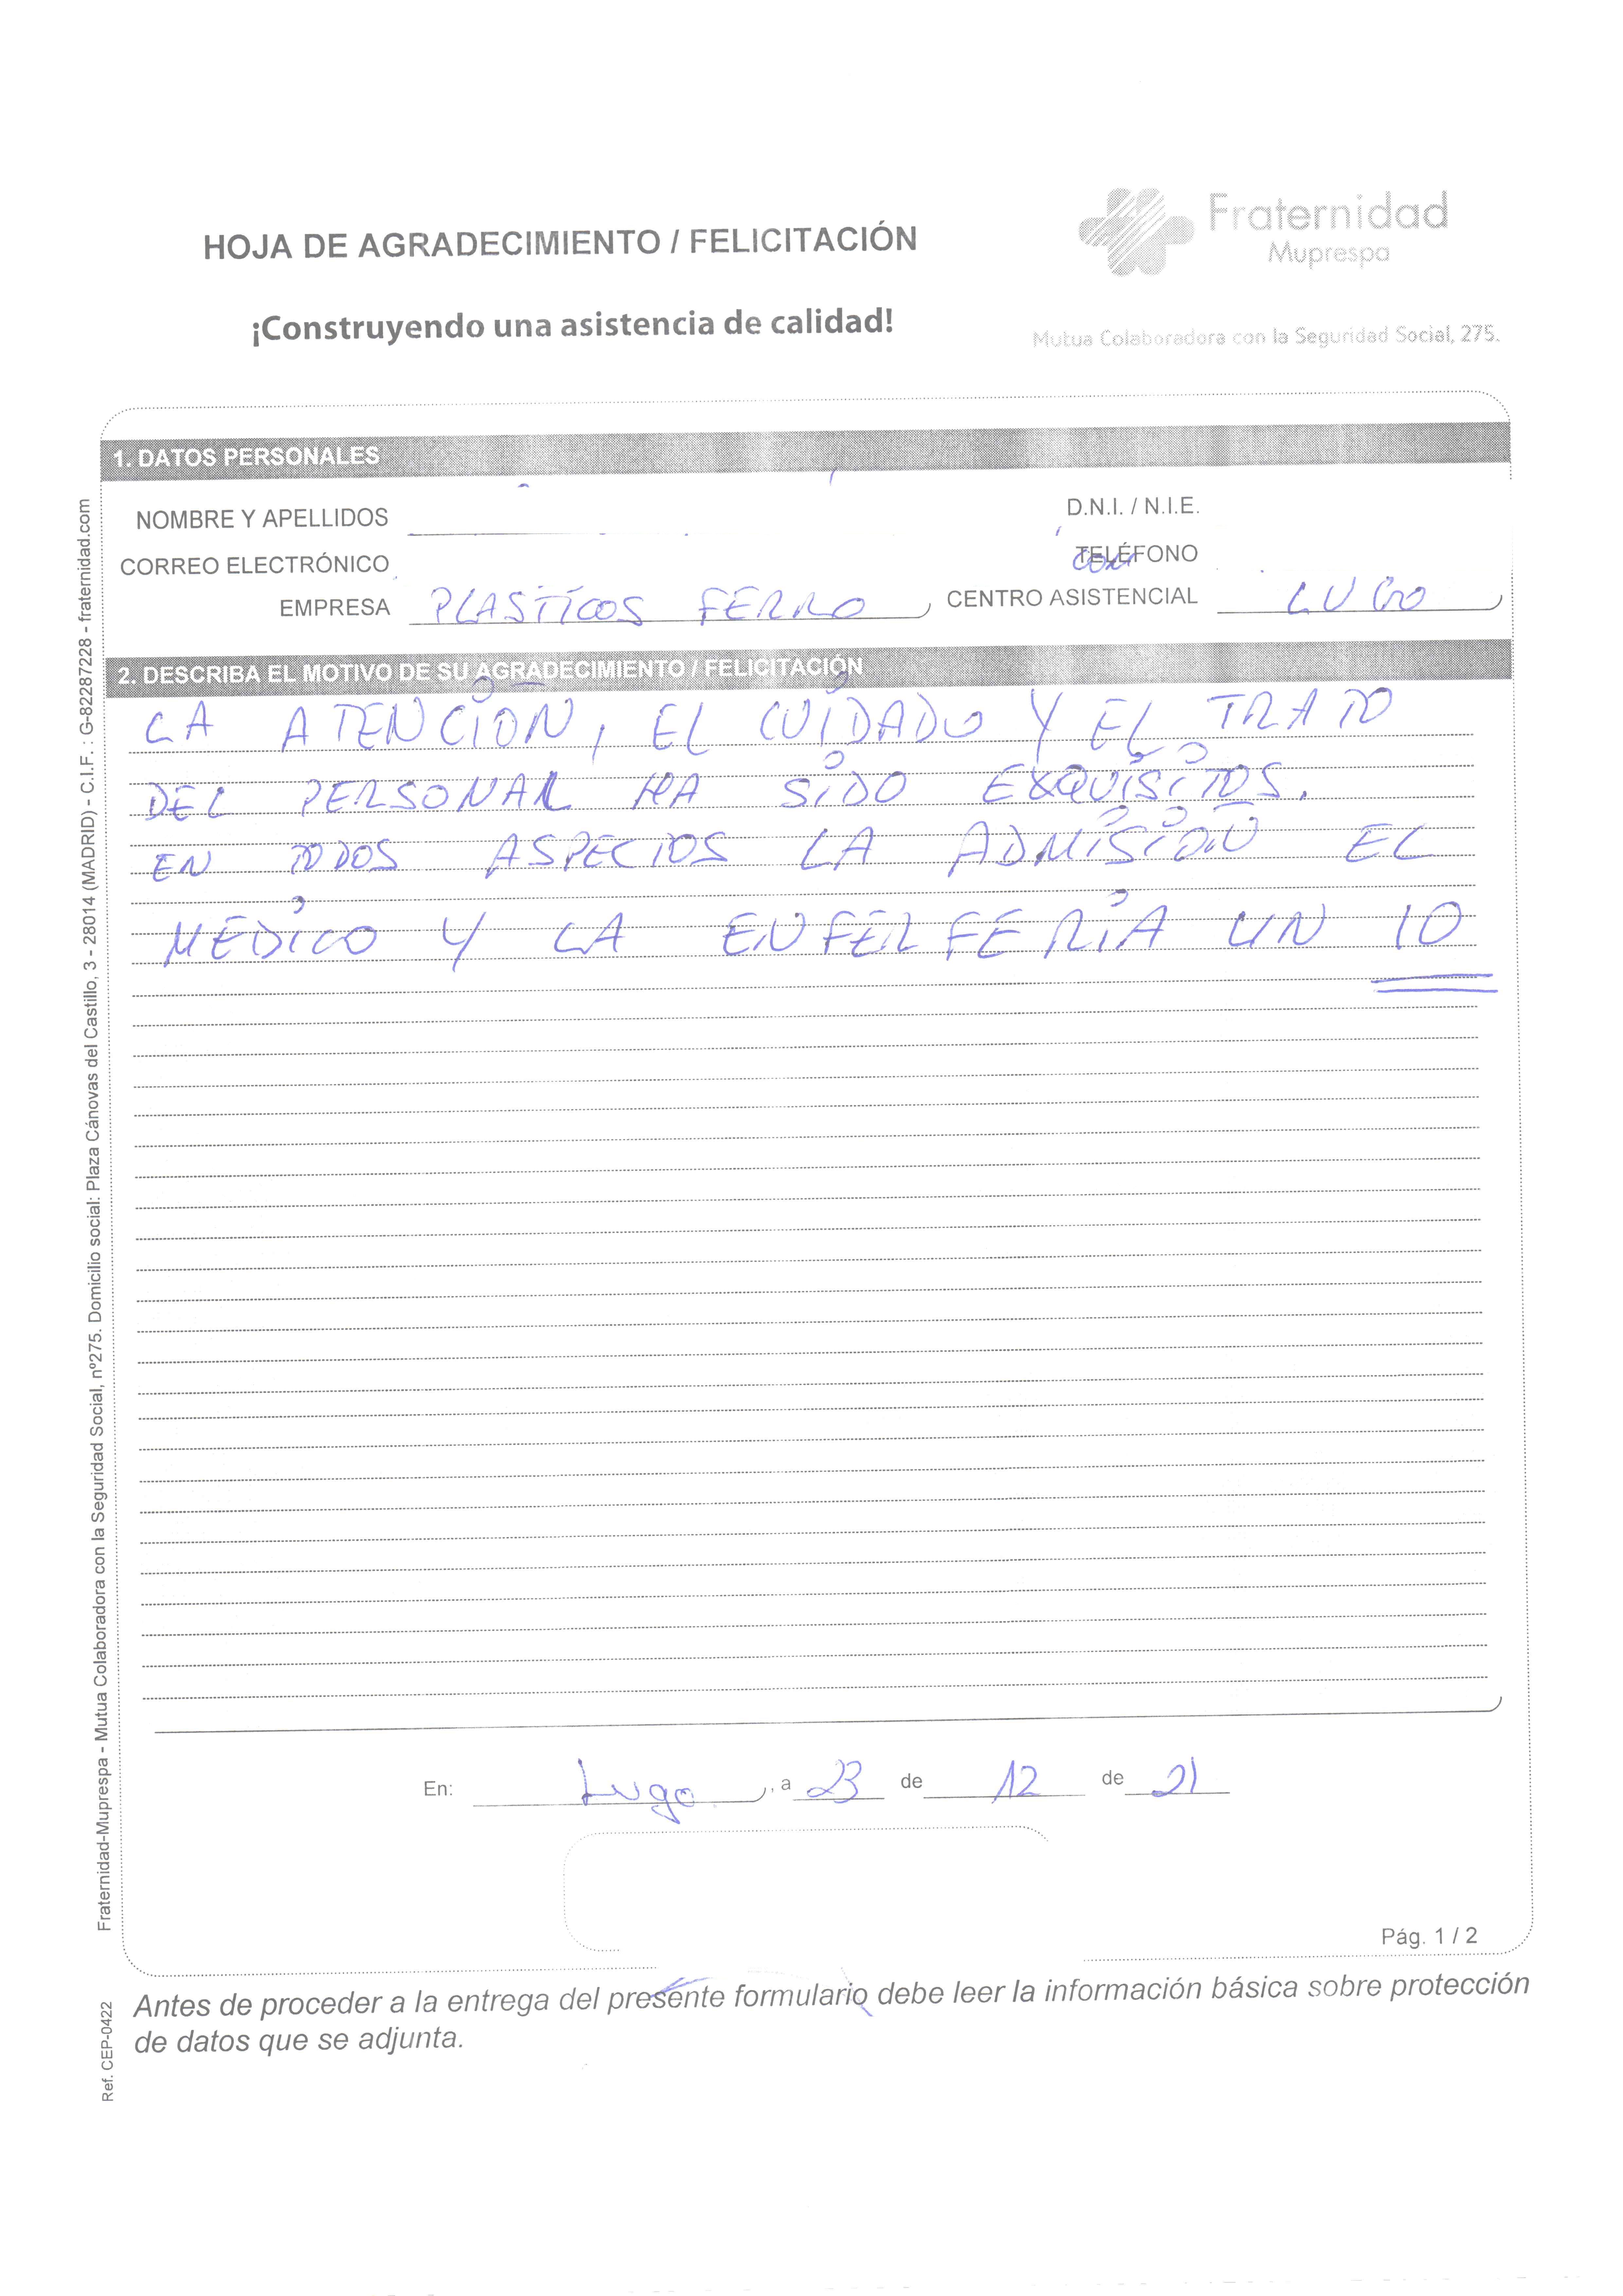 HOJA DE AGRADECIMIENTO / FELICITACIÓN
Fraternidad
Muprespa
¡Construyendo una asistencia de calidad!
Mutua Colaboradora con la Seguridad Social, 275.
1. DATOS PERSONALES
NOMBRE Y APELLIDOS
D.N.I. / N.I.E.
CORREO ELECTRÓNICO
TELÉFONO
EMPRESA PLASTICOS FERRO CENTRO ASISTENCIAL LUGO
2. DESCRIBA EL MOTIVO DE SU AGRADECIMIENTO / FELICITACIÓN
LA ATENCION, EL CUIDADO Y EL TRATO
DEL PERSONAL HA SIDO EXQUISITOS.
EN TODOS ASPECTOS LA ADMISION EL
MEDICO Y LA ENFERFERIA UN 10
En: Lugo, a 23 de 12 de 21
Pág. 1 / 2
Antes de proceder a la entrega del presente formulario debe leer la información básica sobre protección
de datos que se adjunta.
Fraternidad-Muprespa - Mutua Colaboradora con la Seguridad Social, nº275. Domicilio social: Plaza Cánovas del Castillo, 3 - 28014 (MADRID) - C.I.F. : G-82287228 - fraternidad.com
Ref. CEP-0422